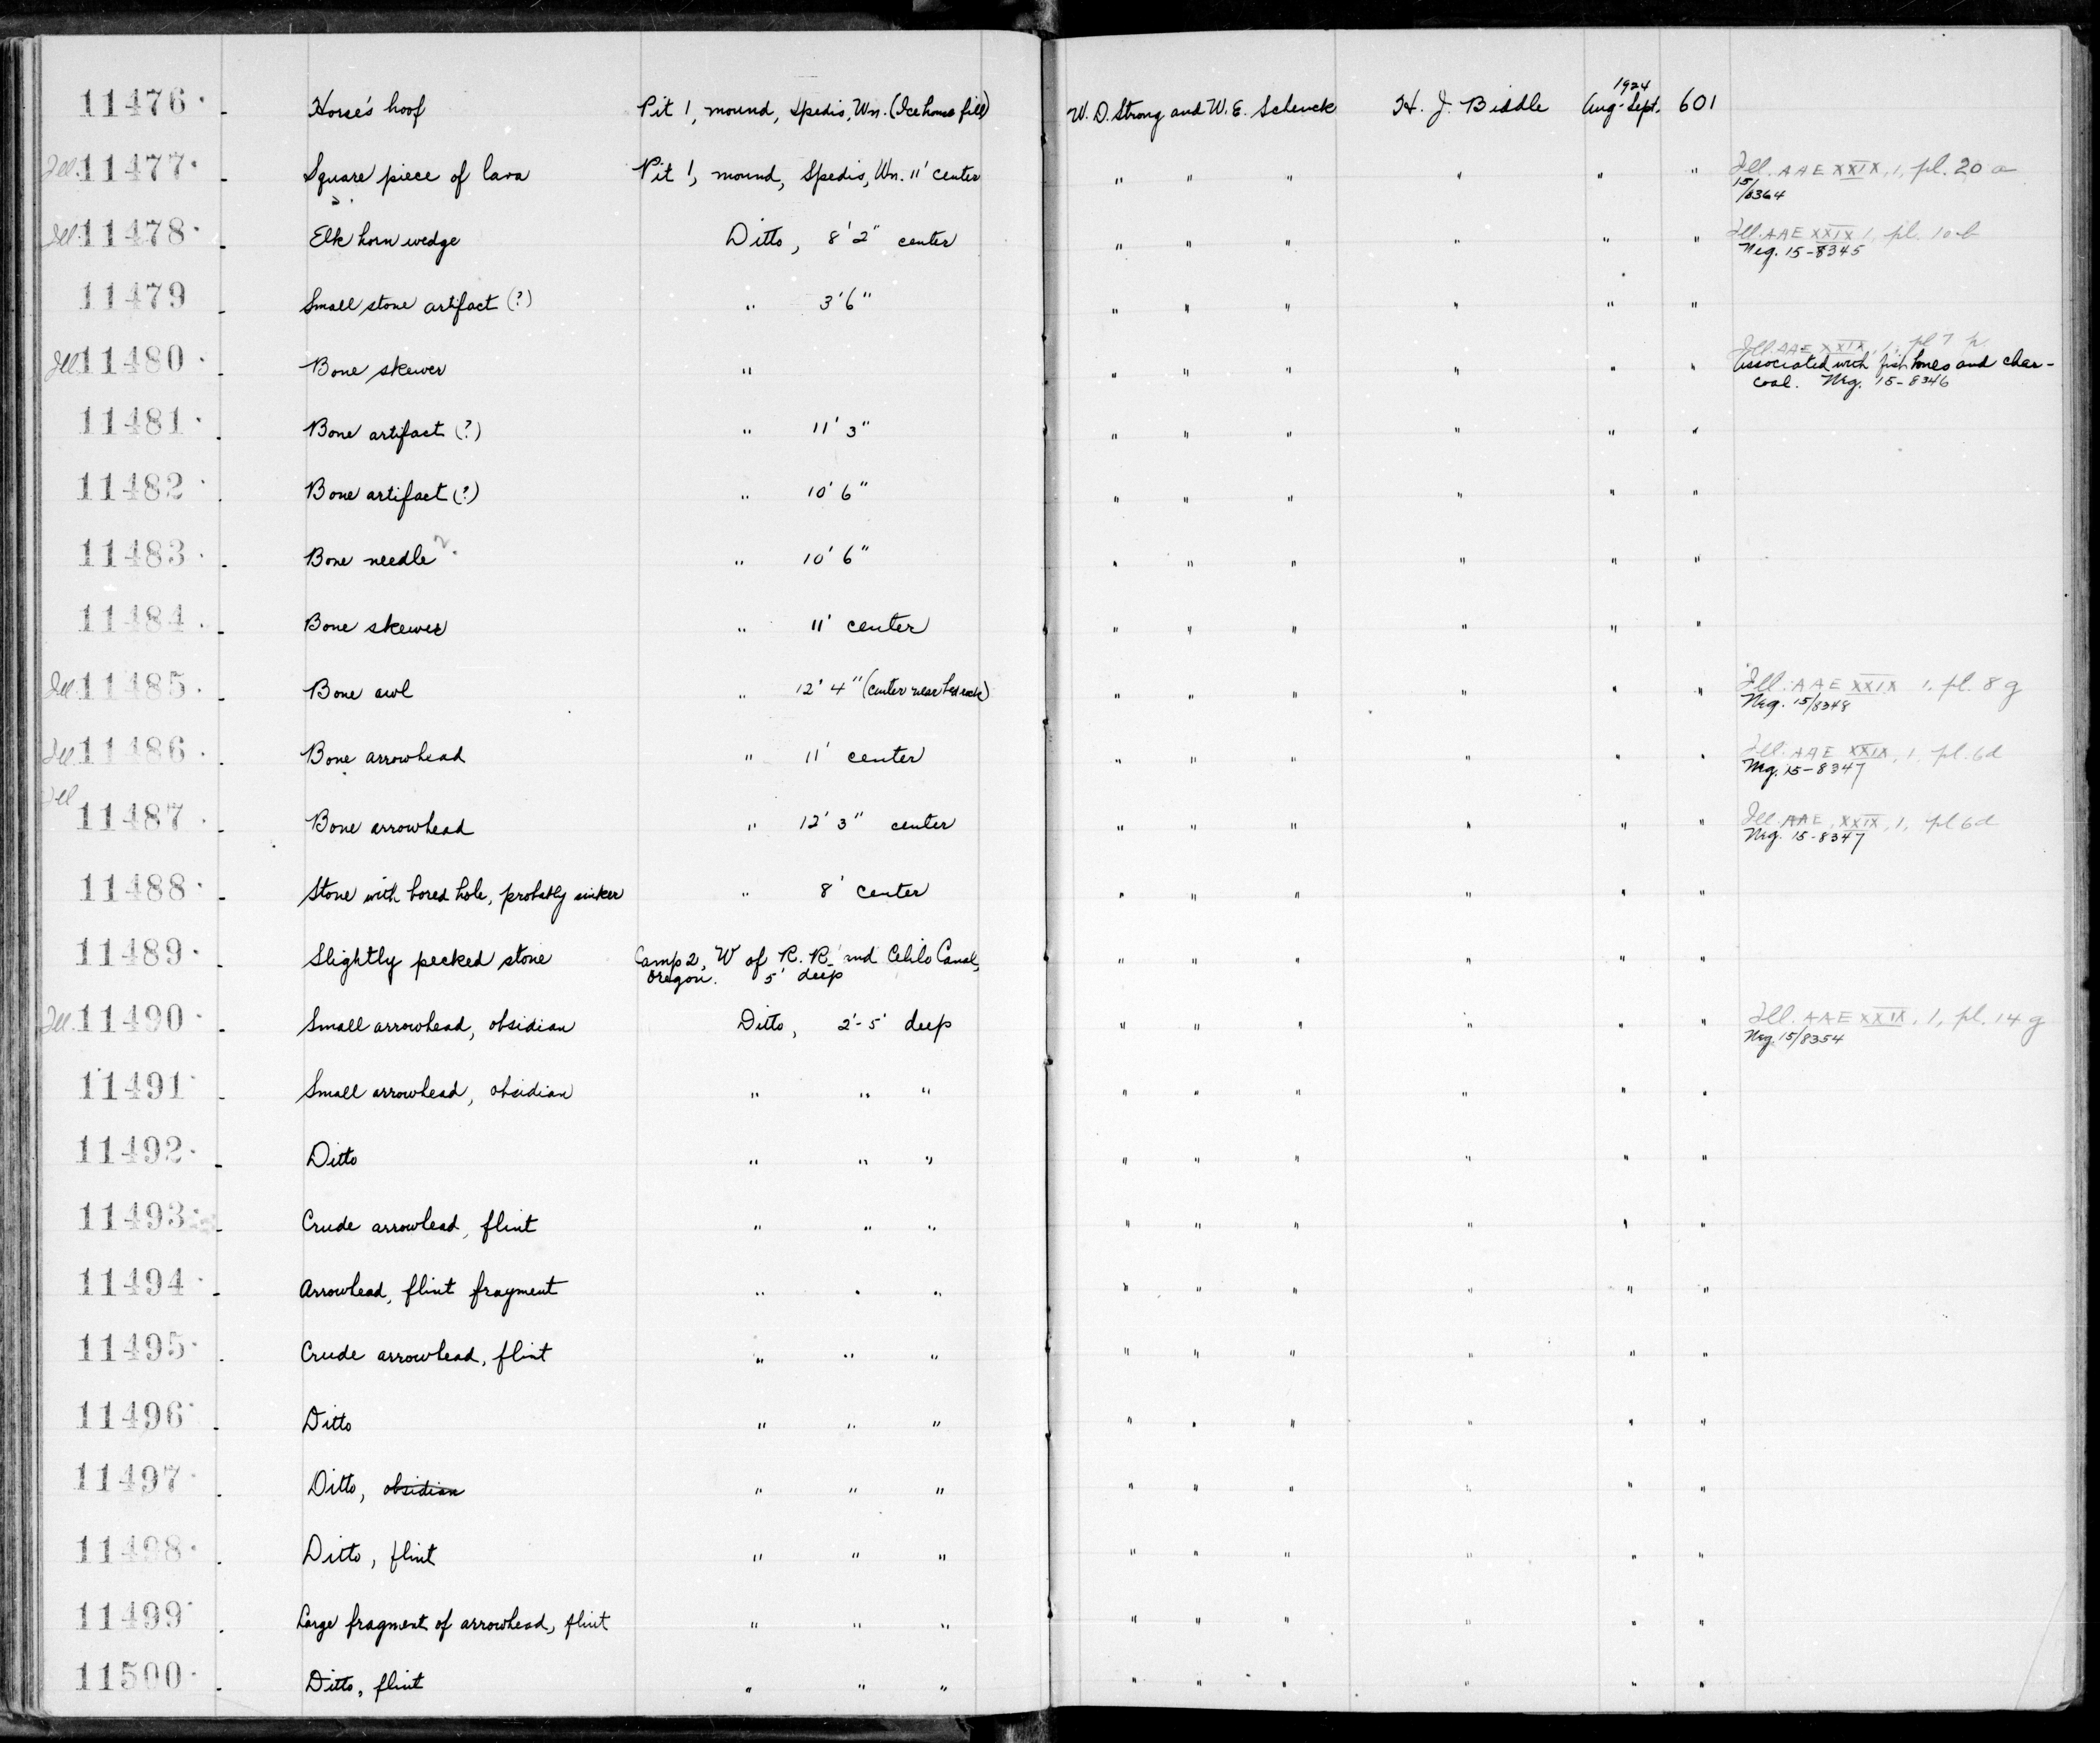 11476 Horse's hoof Pit 1, mound, Spedis, Wn. (Ice house fill) W. D. Strong and W. E. Schenck H. J. Biddle 1924 Aug-Sept. 601
Ill. 11477 Square piece of lava Pit 1, mound, Spedis, Wn. 11' center " " " " " " Ill. AAE XXIX, 1, pl. 20 a
15/8364
Ill. 11478 Elk horn wedge Ditto, 8' 2" center " " " " " " Ill. AAE XXIX 1, pl. 10 b
Neg. 15-8345
11479 Small stone artifact (?) " 3' 6" " " " " " "
Ill. 11480 Bone skewer " " " " " " " Ill. AAE XXIX, 1, pl 7 h
Associated with fish bones and char-
coal. Neg. 15-8346
11481 Bone artifact (?) " 11' 3" " " " " " "
11482 Bone artifact (?) " 10' 6" " " " " " "
11483 Bone needle ? " 10' 6" " " " " " "
11484 Bone skewer " 11' center " " " " " "
Ill. 11485 Bone awl " 12' 4" (center near bed rock) " " " " " " Ill. AAE XXIX 1, pl. 8 g
Neg. 15/8348
Ill. 11486 Bone arrowhead " 11' center " " " " " " Ill. AAE XXIX, 1, pl. 6d
Neg. 15-8347
Ill 11487 Bone arrowhead " 12' 3" center " " " " " " Ill. AAE, XXIX, 1, pl 6d
Neg. 15-8347
11488 Stone with bored hole, probably sinker " 8' center " " " " " "
11489 Slightly pecked stone Camp 2, W of R. R. and Celilo Canal, " " " " " "
Oregon. 5' deep
Ill. 11490 Small arrowhead, obsidian Ditto, 2'-5' deep " " " " " " Ill. AAE XXIX, 1, pl. 14 g
Neg 15/8354
11491 Small arrowhead, obsidian " " " " " " " " "
11492 Ditto " " " " " " " " "
11493 Crude arrowhead, flint " " " " " " " " "
11494 Arrowhead, flint fragment " " " " " " " " "
11495 Crude arrowhead, flint " " " " " " " " "
11496 Ditto " " " " " " " " "
11497 Ditto, obsidian " " " " " " " " "
11498 Ditto, flint " " " " " " " " "
11499 Large fragment of arrowhead, flint " " " " " " " " "
11500 Ditto, flint " " " " " " " " "